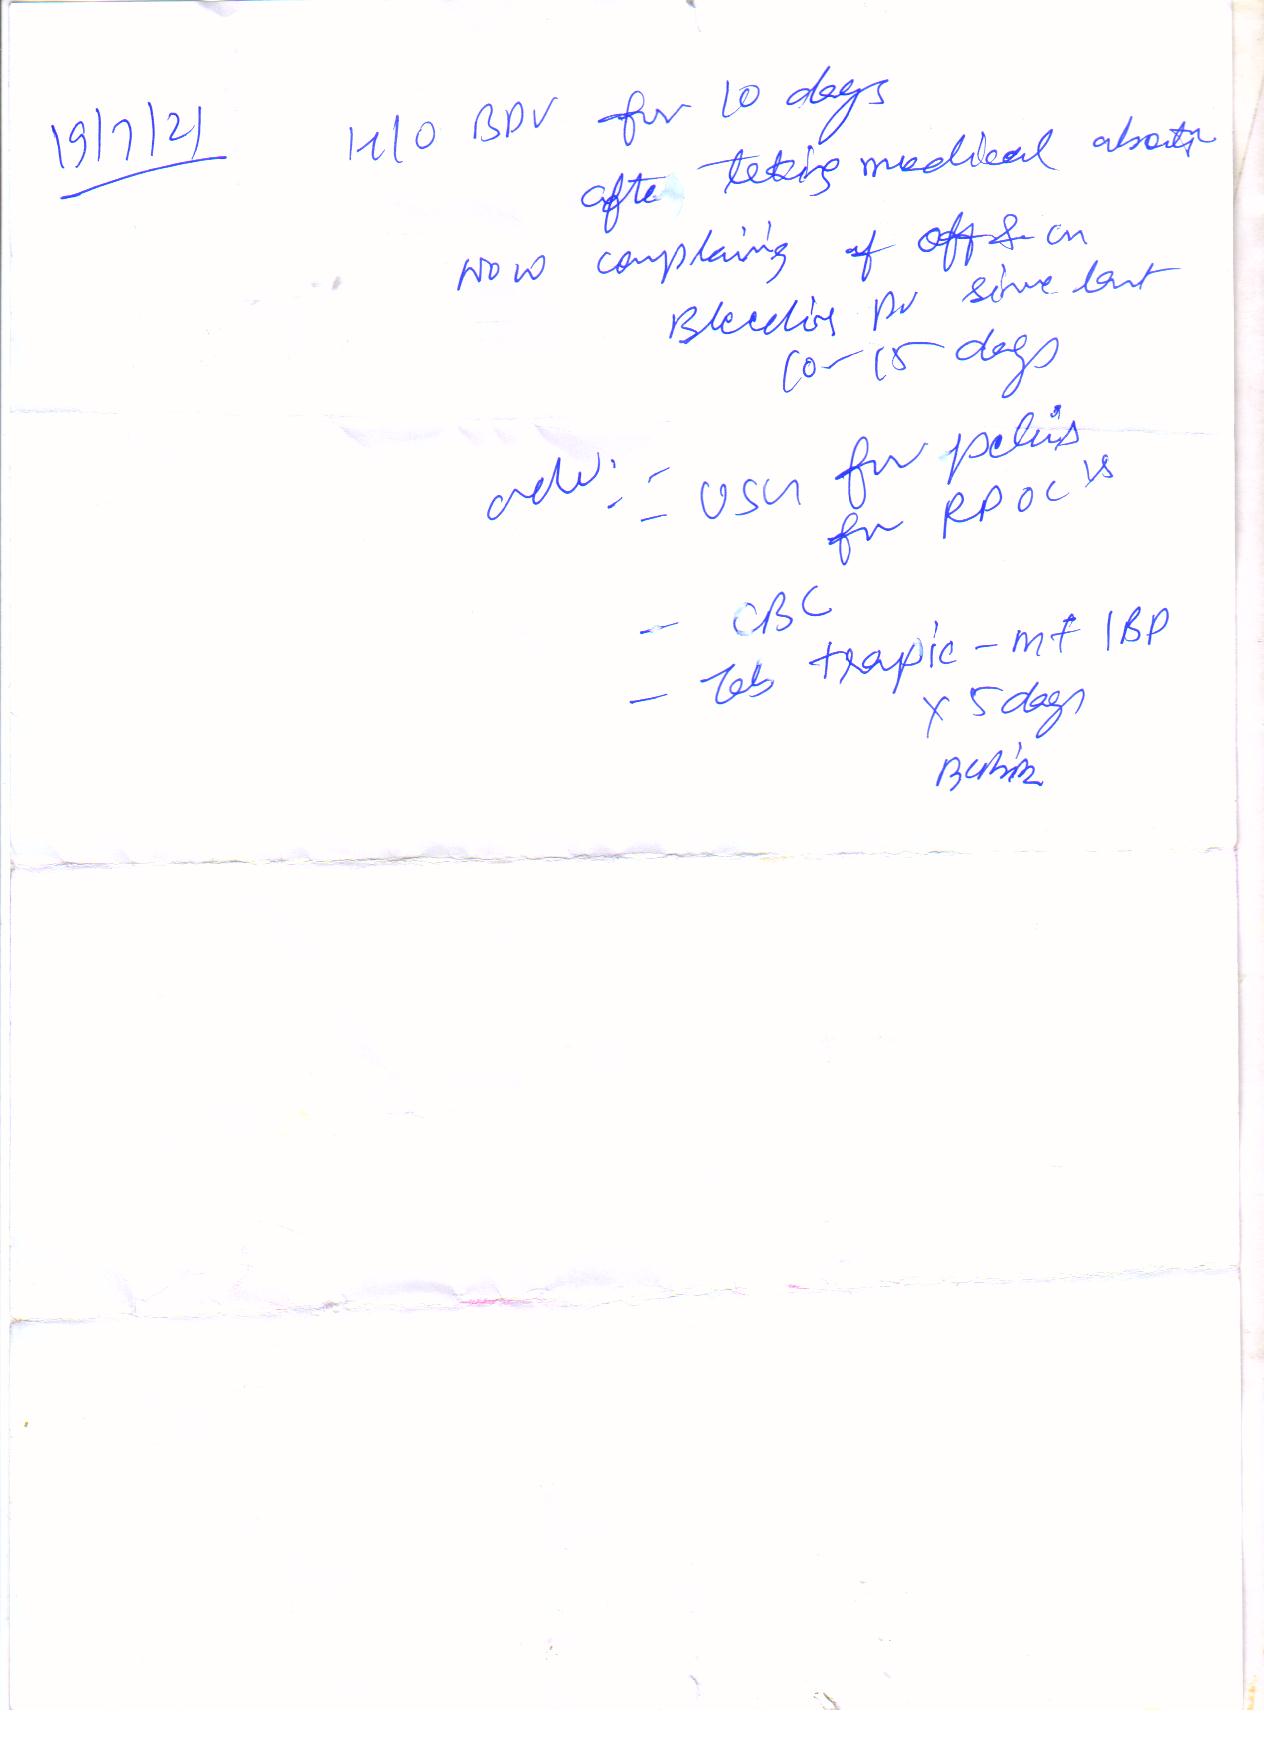 19/7/21 H/O BPV for 10 days
after teking medical abortn
Now complaining of off & on
Bleeding PV since last
10-15 days
adv: - USG for pelvis
for RPOC's
- CBC
- Tab trapic - mf 1BP
x 5 days